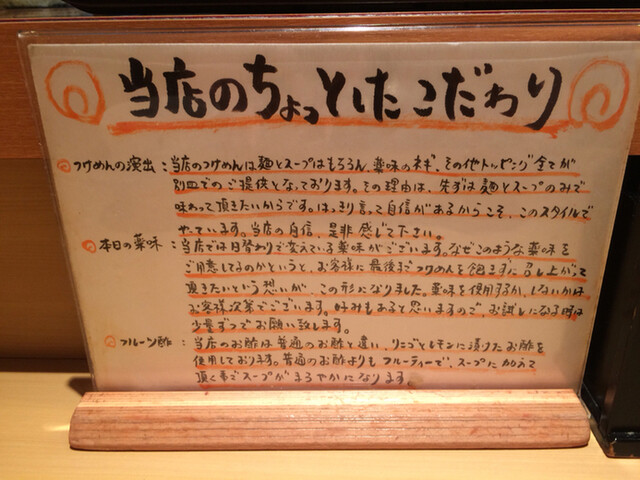 当店のちょっとしたこだわり
つけめんの演出：当店のつけめんは麺とスープはもちろん、薬味のネギ、その他トッピング全てが
別皿でのご提供となっております。その理由は、先ずは麺とスープのみで
味わって頂きたいからです。はっきり言って自信があるからこそ、このスタイルで
やっています。当店の自信、是非感じて下さい。
本日の薬味：当店では日替わりで変えている薬味がございます。なぜこのような薬味を
ご用意してるのかというと、お客様に最後までつけめんを飽きずに召し上がって
頂きたいという想いが、この形になりました。薬味を使用するか、しないかは、
お客様次第でございます。好みもあると思いますので、お試しになる時は
少量ずつでお願い致します。
フルーツ酢：当店のお酢は普通のお酢と違い、リンゴとレモンに漬けたお酢を
使用しております。普通のお酢よりもフルーティーで、スープに加えて
頂く事でスープがまろやかになります。